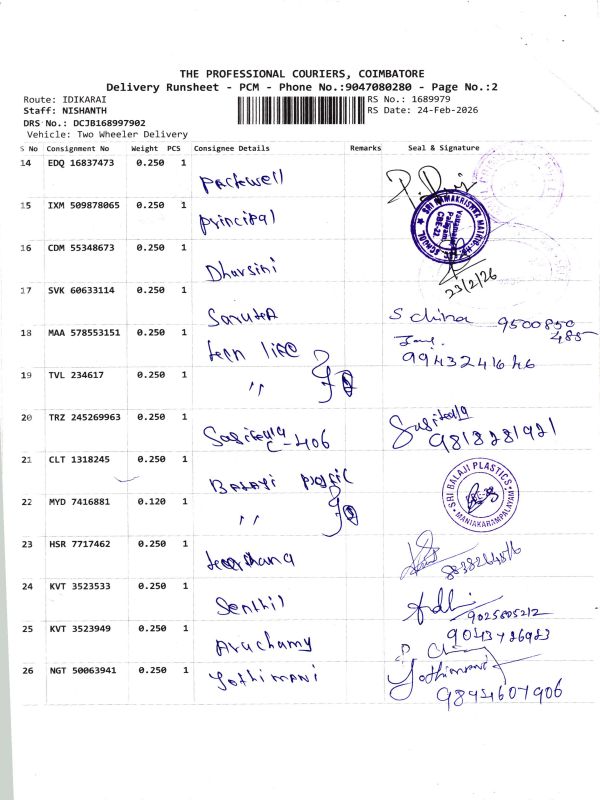 THE PROFESSIONAL COURIERS, COIMBATORE
Delivery Runsheet - PCM - Phone No.:9047080280 - Page No.:2
Route: IDIKARAI
RS No.: 1689979
Staff: NISHANTH
RS Date: 24-Feb-2026
DRS No.: DCJB168997902
Vehicle: Two Wheeler Delivery
S No Consignment No Weight PCS Consignee Details Remarks Seal & Signature
14 EDQ 16837473 0.250 1 packwell
15 IXM 509878065 0.250 1 principal
SRI RAMAKRISHNA MATRIC HR. SEC. SCHOOL
CBE-21
16 CDM 55348673 0.250 1 Dharsini
23/2/26
17 SVK 60633114 0.250 1
9500850
485
18 MAA 578553151 0.250 1 life
9943241646
19 TVL 234617 0.250 1 "
20 TRZ 245269963 0.250 1 C-406
9813281921
21 CLT 1318245 0.250 1 Balaji
SRI BALAJI PLASTICS
MANIAKARAMPALAYAM
22 MYD 7416881 0.120 1 "
23 HSR 7717462 0.250 1
24 KVT 3523533 0.250 1 Senthil
9025805212
25 KVT 3523949 0.250 1 Aruchamy
9043726923
26 NGT 50063941 0.250 1 Jothimani Jothimani
9894607906